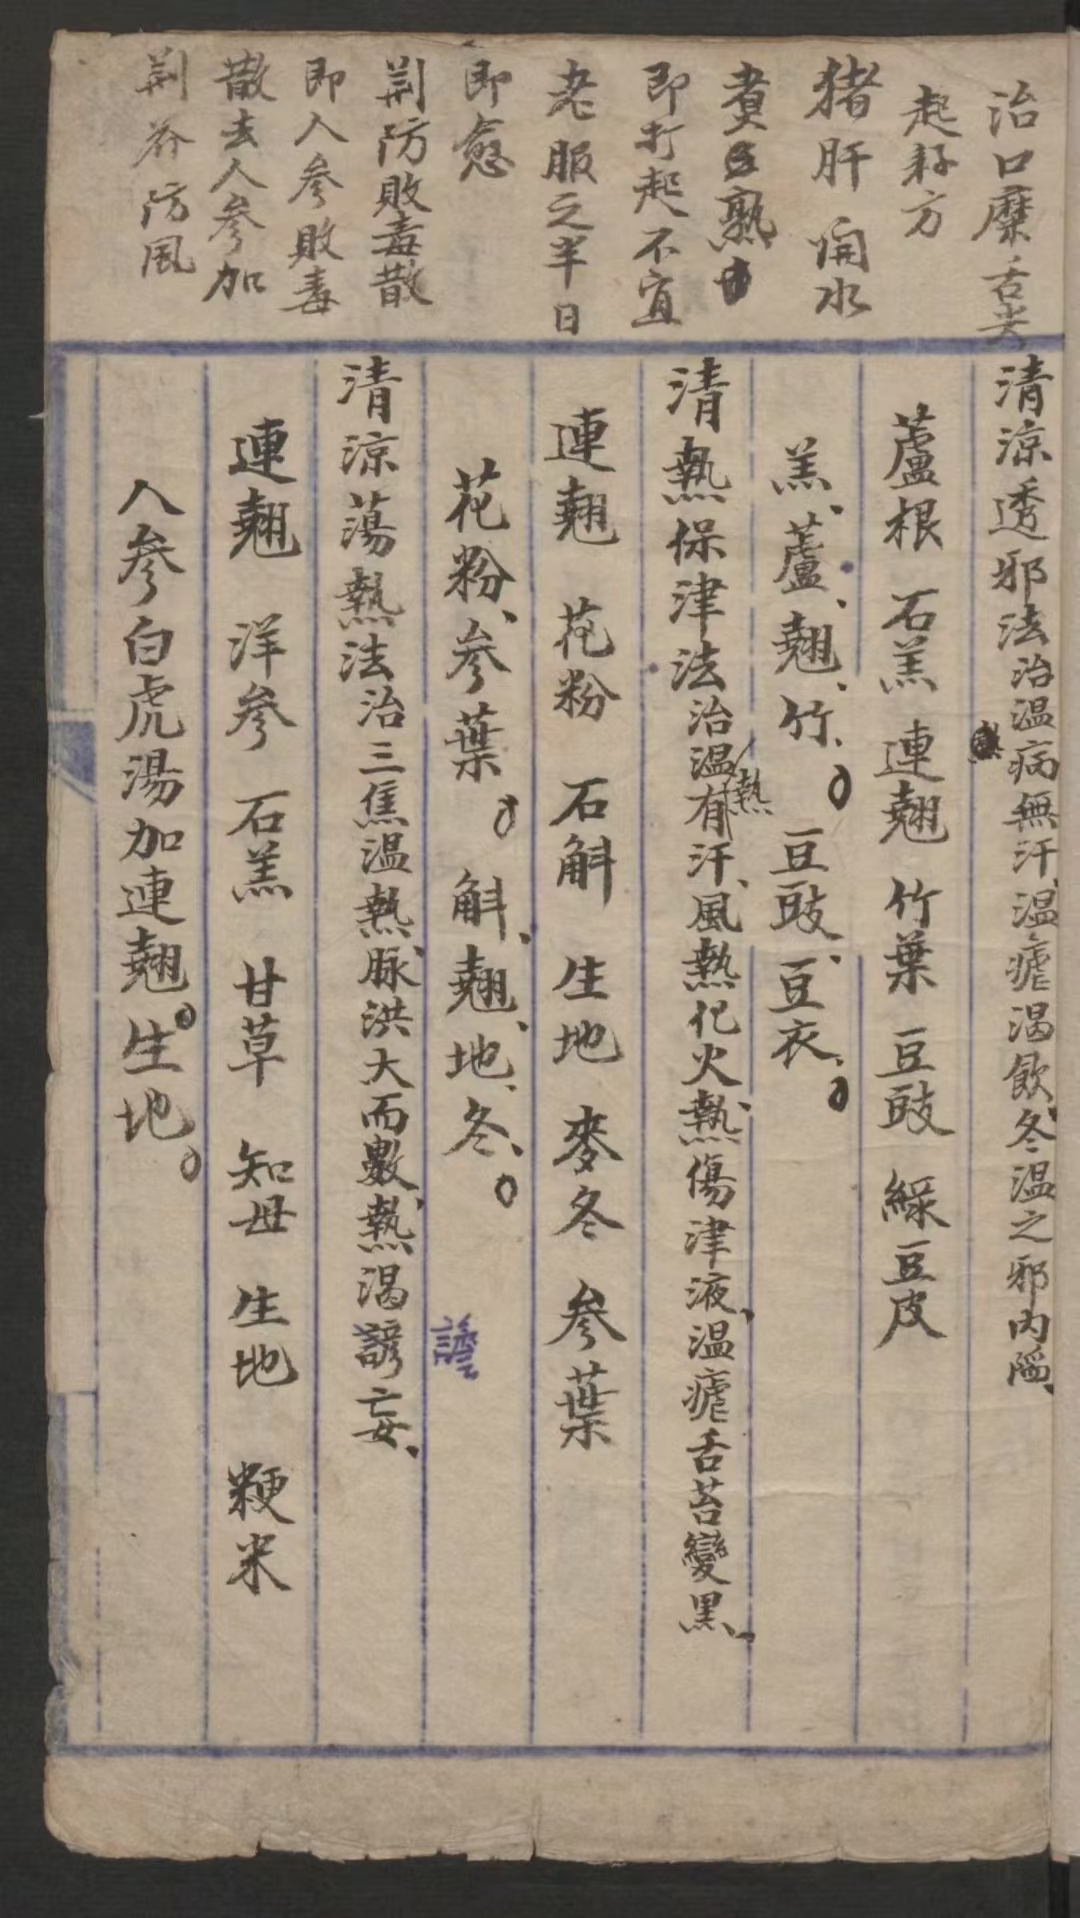 治口糜舌尖
起籽方
猪肝 開水
煑熟
即打起不宜
老服之半日
即愈
荆防敗毒散
即人參敗毒
散去人參加
荆芥防風
清涼透邪法治温病無汗、温瘧渴飲、冬温之邪内陷、
蘆根 石羔 連翹 竹葉 豆豉 綠豆皮
羔、蘆、翹、竹、。豆豉、豆衣、。
清熱保津法治温熱有汗、風熱化火、熱傷津液、温瘧舌苔變黒、
連翹 花粉 石斛 生地 麥冬 參葉
花粉、參葉。斛、翹、地、冬、。
清涼蕩熱法治三焦温熱、脉洪大而數、熱渴諺妄、
譫
連翹 洋參 石羔 甘草 知母 生地 粳米
人參白虎湯加連翹。生地。